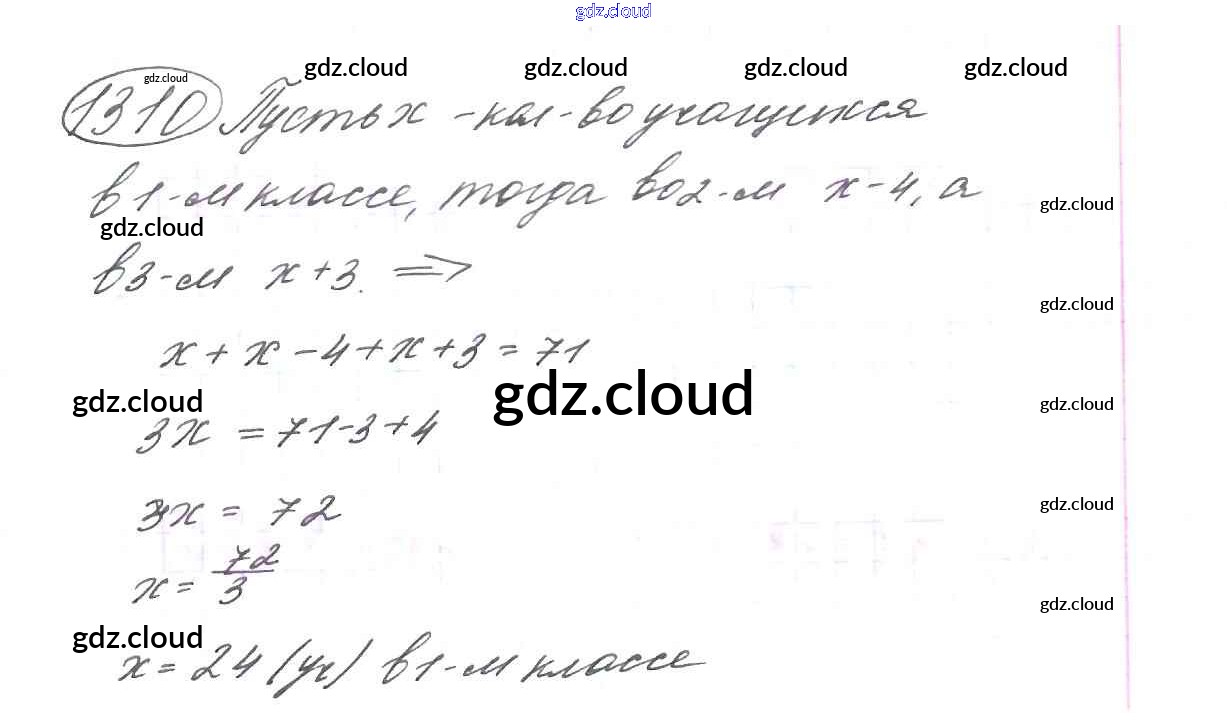 gdz.cloud
gdz.cloud gdz.cloud gdz.cloud gdz.cloud gdz.cloud
1310 Пусть х - кол-во учащихся
в 1-м классе, тогда во 2-м х - 4, а
gdz.cloud
gdz.cloud
в 3-м х + 3. =>
gdz.cloud
х + х - 4 + х + 3 = 71
gdz.cloud gdz.cloud gdz.cloud
3х = 71-3+4
3х = 72
gdz.cloud
х = 72/3
gdz.cloud
gdz.cloud
х = 24 (уч) в 1-м классе